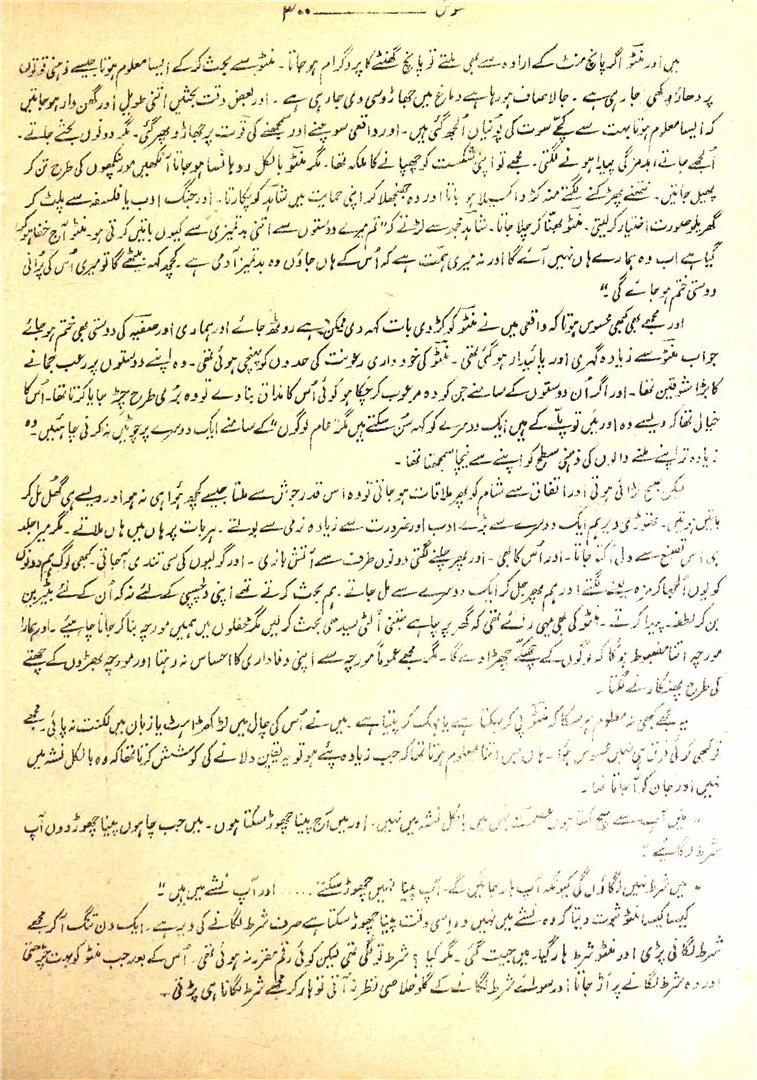 سوس ۳۰۰
میں اور منٹو اگر پانچ منٹ کے ارادہ سے بھی ملتے تو پانچ گھنٹے کا پروگرام ہو جاتا ۔ منٹو سے بحث کر کے ایسا معلوم ہوتا جیسے ذہنی قوتوں
پر دھار رکھی جا رہی ہے ۔ جالا صاف ہو رہا ہے دماغ میں جھاڑو سی دی جا رہی ہے ۔ اور بعض وقت بحثیں اتنی طویل اور گھن دار ہو جاتیں
کہ ایسا معلوم ہوتا بہت سے کچے سوت کی پونیاں اُلجھ گئی ہیں ۔ اور واقعی سوچنے اور سمجھنے کی قوت پر جھاڑو پھر گئی ۔ مگر دونوں بحثے جاتے ۔
اُلجھے جاتے ، بدمزگی پیدا ہونے لگتی ۔ مجھے تو اپنی شکست کو چھپانے کا ملکہ تھا ۔ مگر منٹو بالکل روہانسا ہو جاتا آنکھیں مور پنکھوں کی طرح تن کر
پھیل جاتیں ۔ نتھنے پھڑکنے لگتے منہ کڑوا کسیلا ہو جاتا اور وہ جھنجھلا کر اپنی حمایت میں شاہد کو پکارتا ۔ اور جنگ ادب یا فلسفہ سے پلٹ کر
گھریلو صورت اختیار کر لیتی ۔ منٹو بھنّا کر چلا جاتا ۔ شاہد مجھ سے لڑتے کہ "تم میرے دوستوں سے اتنی بدتمیزی سے کیوں باتیں کرتی ہو ۔ منٹو آج خفا ہو کر
گیا ہے اب وہ ہمارے ہاں نہیں آئے گا اور نہ میری ہمت ہے کہ اُس کے ہاں جاؤں وہ بدتمیز آدمی ہے ۔ کچھ کہہ بیٹھے گا تو میری اُس کی پُرانی
دوستی ختم ہو جائے گی ۔"
اور مجھے بھی کبھی محسوس ہوتا کہ واقعی میں نے منٹو کو کڑوی بات کہہ دی ممکن ہے روٹھ جائے اور ہماری اور صفیہ کی دوستی بھی ختم ہو جائے
جو اب منٹو سے زیادہ گہری اور پائیدار ہو گئی تھی ۔ منٹو کی خود داری رعونت کی حدوں کو پہنچی ہوئی تھی ۔ وہ اپنے دوستوں پر رعب جمانے
کا بڑا شوقین تھا ۔ اور اگر اُن دوستوں کے سامنے جن کو وہ مرعوب کر چکا ہو کوئی اُس کا مذاق بنا دے تو وہ بُری طرح چڑ جایا کرتا تھا ۔ اُس کا
خیال تھا کہ ویسے وہ اور میں تو پلّے کے ہیں ایک دوسرے کو کہہ سُن سکتے ہیں مگر "عام لوگوں" کے سامنے ایک دوسرے پر چوٹیں نہ کرنی چاہئیں ۔ وہ
زیادہ تر اپنے ملنے والوں کی ذہنی سطح کو اپنے سے نیچا سمجھتا تھا ۔
لیکن صبح لڑائی ہوتی اور اتفاق سے شام کو پھر ملاقات ہو جاتی تو وہ اس قدر جوش سے ملتا جیسے کچھ ہوا ہی نہ ہو اور ویسے ہی گھُل مل کر
باتیں ہوتیں ۔ تھوڑی دیر ہم ایک دوسرے سے بڑے ادب اور ضرورت سے زیادہ نرمی سے بولتے ۔ ہر بات پر ہاں میں ہاں ملاتے ۔ مگر میرا جلد
ہی اس تصنع سے دل اُکتا جاتا ۔ اور اُس کا بھی ۔ اور پھر چلنے لگتی دونوں طرف سے آتش بازی ۔ اور گولیوں کی سی تندی آ جاتی ۔ کبھی لوگ ہم دونوں
کو یوں اُلجھا کر مزہ لینے لگتے اور ہم پھر جل کر ایک دوسرے سے مل جاتے ۔ ہم بحث کرتے تھے اپنی دلچسپی کے لئے نہ کہ اُن کے لئے بٹیریں
بن کر لطف پیدا کرتے ۔ منٹو کی بھی یہی رائے تھی کہ گھر پر چاہے جتنی اُلٹی سیدھی بحث کر لیں مگر محفلوں میں ہمیں مورچہ بنا کر جانا چاہیئے ۔ اور ہمارا
مورچہ اتنا مضبوط ہو گا کہ لوگوں کے چھکے چھڑا دے گا ۔ مگر مجھے عموماً مورچہ سے اپنی وفاداری کا احساس نہ رہتا اور مورچہ بھڑوں کے چھتے
کی طرح پھنکارنے لگتا ۔
یہ مجھے کبھی نہ معلوم ہو سکا کہ منٹو پی کر بہکتا ہے یا بہک کر پیتا ہے ۔ میں نے اُس کی چال میں لڑکھڑاہٹ یا زبان میں لکنت نہ پائی ۔ مجھے
تو کبھی کوئی فرق ہی نہیں محسوس ہوا ۔ ہاں بس اتنا معلوم ہوتا تھا کہ جب زیادہ پئے ہو تو یہ یقین دلانے کی کوشش کرتا تھا کہ وہ بالکل نشہ میں
نہیں اور جان کو آ جاتا تھا ۔
"میں آپ سے سچ کہتا ہوں عصمت بہن میں بالکل نشہ میں نہیں ۔ اور میں آج پینا چھوڑ سکتا ہوں ۔ میں جب چاہوں پینا چھوڑ دوں آپ
شرط لگائیے"
"میں شرط نہیں لگاؤں گی کیونکہ آپ ہار جائیں گے ۔ آپ پینا نہیں چھوڑ سکتے ...... اور آپ نشے میں ہیں"
کیسا کیسا منٹو ثبوت دیتا کہ وہ نشے میں نہیں وہ اسی وقت پینا چھوڑ سکتا ہے صرف شرط لگانے کی دیر ہے ۔ ایک دن تنگ آ کر مجھے
شرط لگانی پڑی اور منٹو شرط ہار گیا ۔ میں جیت گئی ۔ مگر کیا ؟ شرط تو لگی تھی لیکن کوئی رقم مقرر نہ ہوئی تھی ۔ اُس کے بعد جب منٹو کو بہت چڑھتی
اور وہ شرط لگانے پر اڑ جاتا اور سوائے شرط لگانے کے گلو خلاصی نظر نہ آتی تو ہار کر مجھے شرط لگانا ہی پڑتی ۔